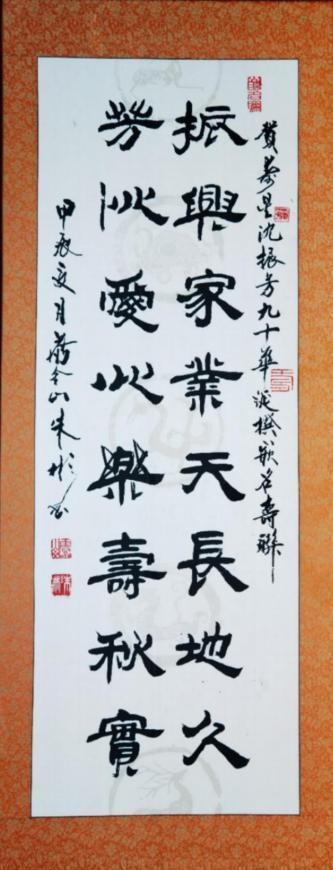 賀壽星沈振芳九十華誕撰嵌名壽聯
振興家業天長地久
芳沁愛心樂壽秋實
甲辰夏月山朱彬書